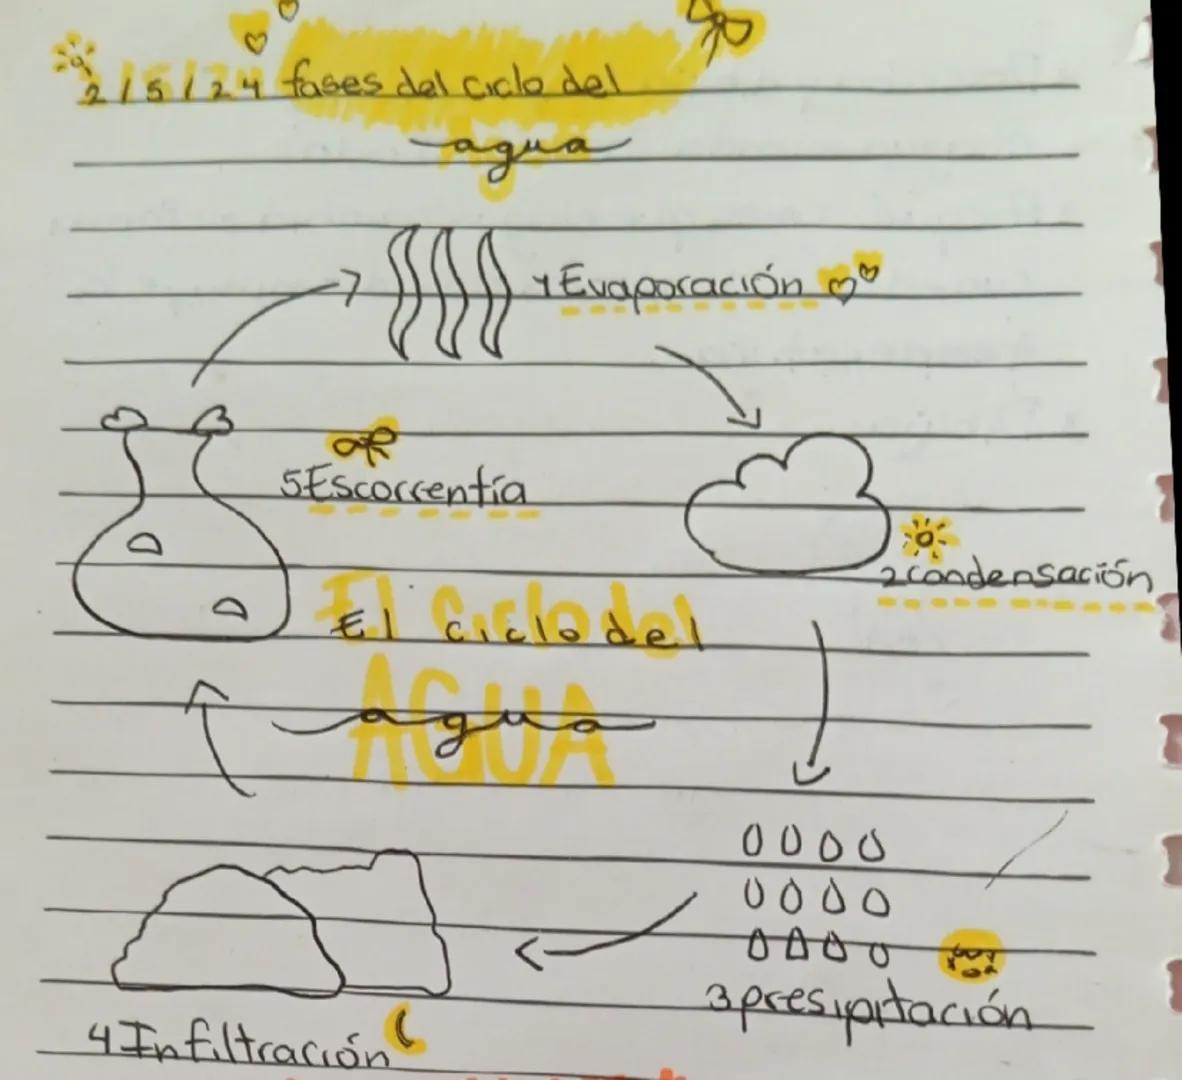 2/5/24 fases del ciclo del
agua
1 Evaporación
5 Escorrentía
2 condensación
El ciclo del
agua
3 presipitación
4 Infiltración